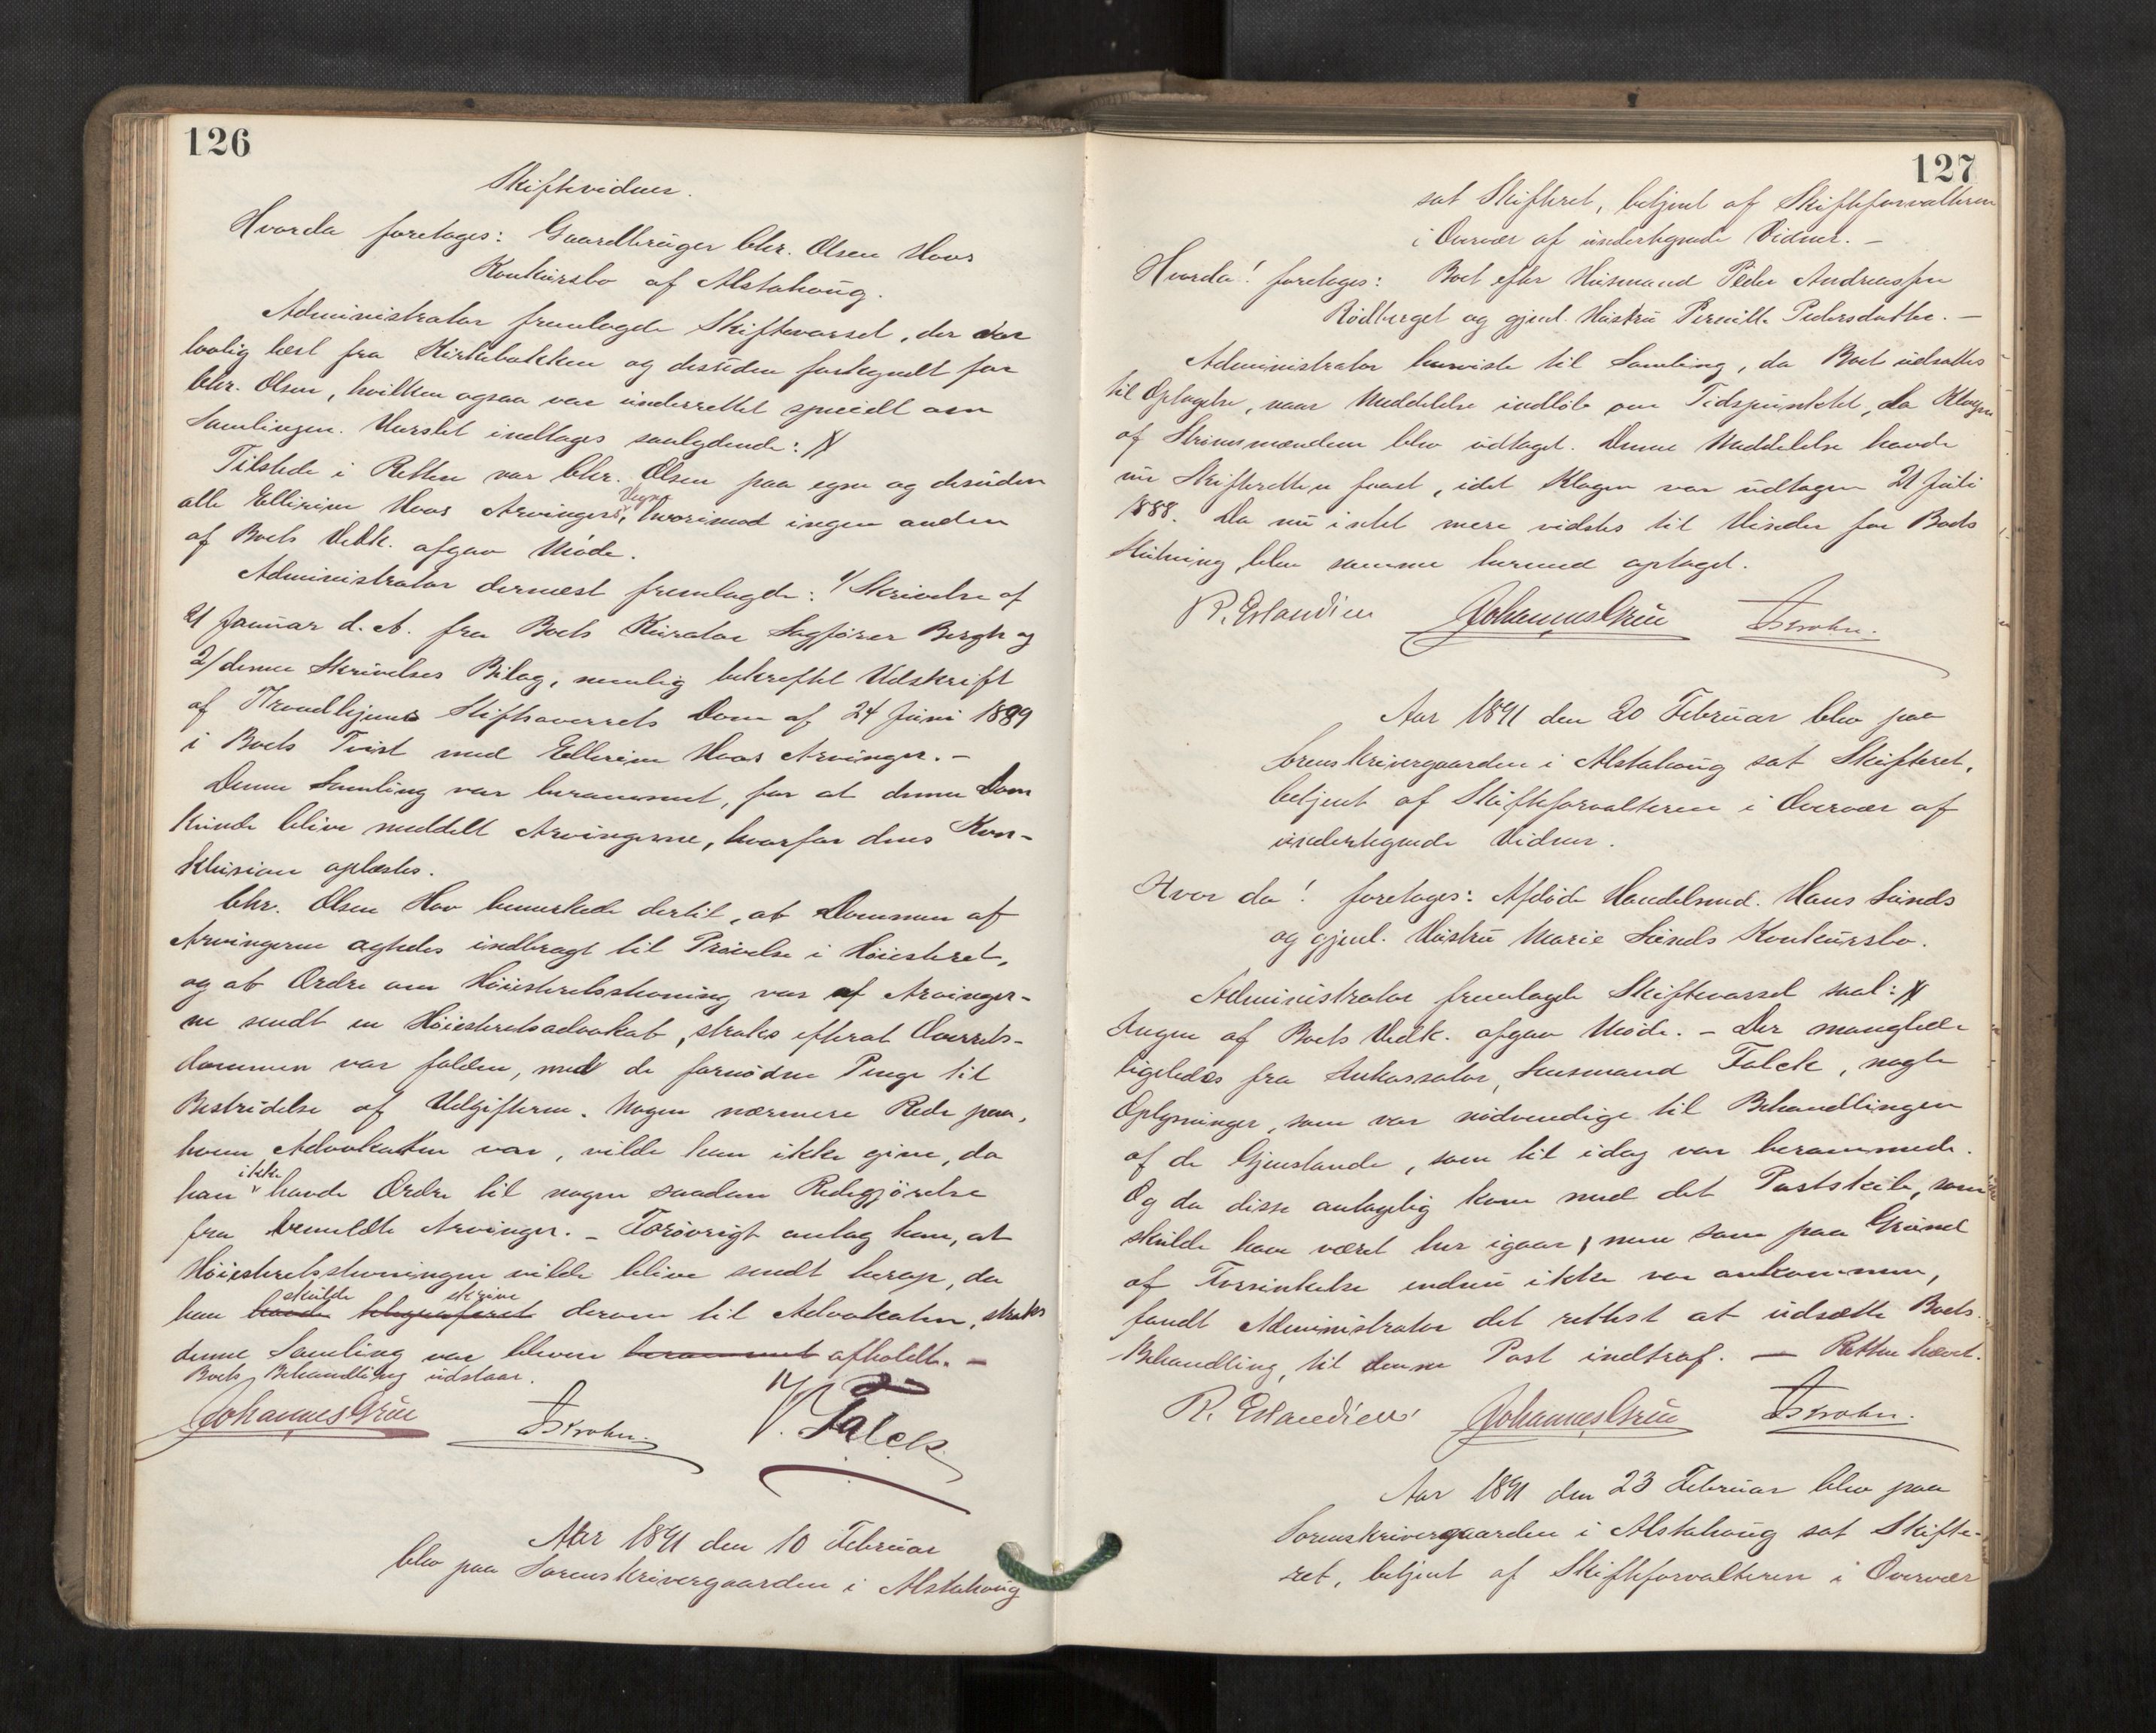 126
Skiftevidner.
Hvorda foretages: Gaardbruger Chr. Olsen Hovs
Konkursbo af Alstahoug.
Administrator fremlagde Skiftevarsel, der var
lovlig læst fra Kirkebakken og desuden forkyndt for
Chr. Olsen, hvilken ogsaa var underrettet specielt om
Samlingen. Varslet indtages saalydende:
Tilstede i Retten var Chr. Olsen paa egne og desuden
alle Ellerine Hovs Arvingers Vegne, hvorimod ingen anden
af Boets Vedk. afgav Møde.
Administrator dernæst fremlagde: 1/ Skrivelse af
21 Januar d. A. fra Boets Kurator Sagfører Bergh og
2/ denne Skrivelses Bilag, nemlig bekræftet Udskrift
af Trondhjems Stiftsoverrets Dom af 24 Juni 1889
i Boets Tvist med Ellerine Hovs Arvinger. –
Denne Samling var berammet, for at denne Dom
kunde blive meddelt Arvingerne, hvorfor dens Kon-
klusion oplæstes.
Chr. Olsen Hov bemærkede dertil, at Dommen af
Arvingerne agtedes indbragt til Prøvelse i Høiesteret,
og at Ordre om Høiesteretsstevning var af Arvinger-
ne sendt en Høiesteretsadvokat, straks efterat Overrets-
dommen var falden, med de fornødne Penge til
Bestridelse af Udgifterne. Nogen nærmere Rede paa,
hvem Advokaten var, vilde han ikke give, da
han ikke havde Ordre til nogen saadan Redegjørelse
fra bemeldte Arvinger. – Forøvrigt antog han, at
Høiesteretsstevningen vilde blive sendt herop, da
han havde skulde telegraferet skrive derom til Advokaten, straks
denne Samling var bleven berammet afholdt. –
Boets Behandling udstaar.
Johannes Grue Askrohn. V. Falck
Aar 1891 den 10 Februar
blev paa Sorenskrivergaarden i Alstahoug
127
sat Skifteret, betjent af Skifteforvalteren
i Overvær af undertegnede Vidner. –
Hvorda! foretages: Boet efter Husmand Peder Andreassen
Rødberget og gjenl. Hustru Pernille Pedersdatter. –
Administrator henviste til Samling, da Boet udsattes
til Optagelse, naar Meddelelse indløb om Tidspunktet, da Klagen
af Skrinsmændene blev udtaget. Denne Meddelelse havde
nu Skifteretten faaet, idet Klagen var udtagen 21 Juli
1888. Da nu intet mere vidstes til Hinder for Boets
Slutning, blev samme hermed optaget.
R. Erlandsen Johannes Grue Askrohn.
Aar 1891 den 20 Februar blev paa
Sorenskrivergaarden i Alstahoug sat Skifteret,
betjent af Skifteforvalteren i Overvær af
undertegnede Vidner.
Hvor da! foretages: Afdøde Handelsmd. Hans Lunds
og gjenl. Hustru Marie Lunds Konkursbo.
Administrator fremlagde Skiftevarsel saal:
Ingen af Boets Vedk. afgav Møde. – Der manglede
ligeledes fra Inkassator, Lensmand Falck, nogle
Oplysninger, som var nødvendige til Behandlingen
af de Gjenstande, som til idag var berammede.
Og da disse antagelig kom med det Postskib, som
skulde have været her igaar, men som paa Grund
af Forsinkelse endnu ikke var ankommen,
fandt Administrator det rettest at udsætte Boets
Behandling, til denne Post indtraf. — Retten hævet.
R. Erlandsen Johannes Grue Askrohn.
Aar 1891 den 23 Februar blev paa
Sorenskrivergaarden i Alstahoug sat Skifte-
ret, betjent af Skifteforvalteren i Overvær